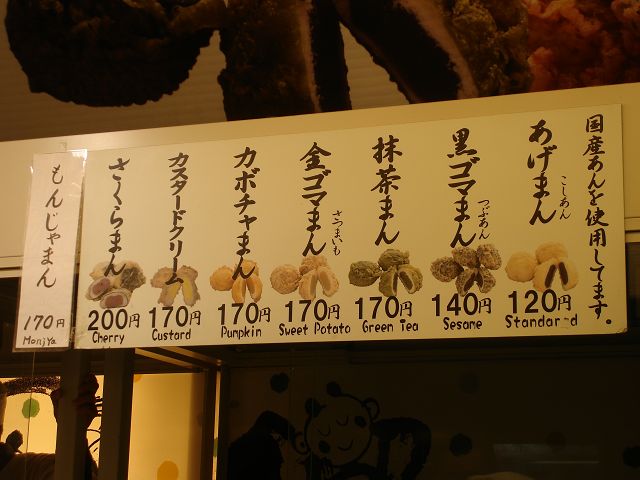 国産あんを使用してます。
あげまん
こしあん
120円
Standard
黒ゴマまん
つぶあん
140円
Sesame
抹茶まん
170円
Green Tea
金ゴマまん
さつまいも
170円
Sweet Potato
カボチャまん
170円
Pumpkin
カスタードクリーム
170円
Custard
さくらまん
200円
Cherry
もんじゃまん
170円
Monjya